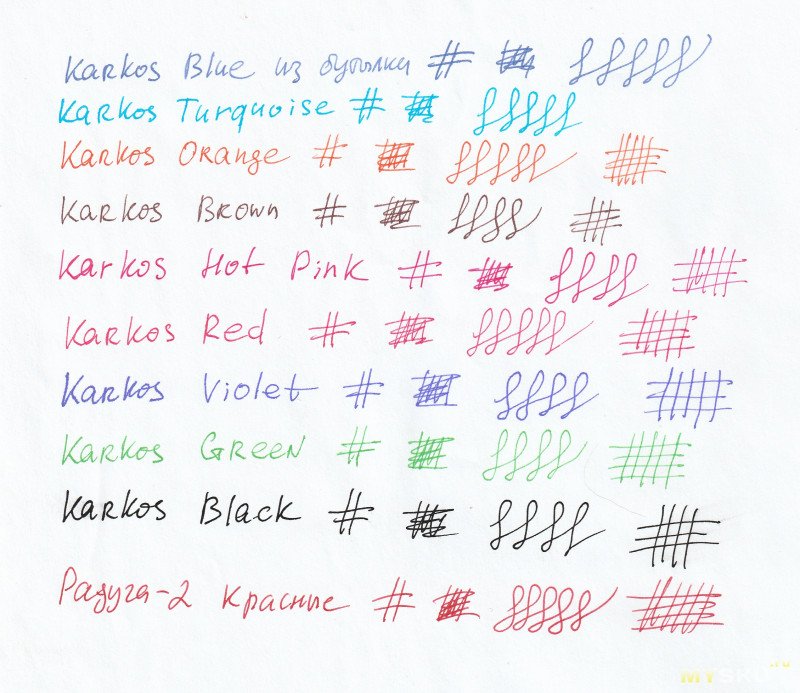 Karkos Blue из бутылки #
Karkos Turquoise #
Karkos Orange #
Karkos Brown #
Karkos Hot Pink #
Karkos Red #
Karkos Violet #
Karkos Green #
Karkos Black #
Радуга-2 Красные #
MYSKU.RU